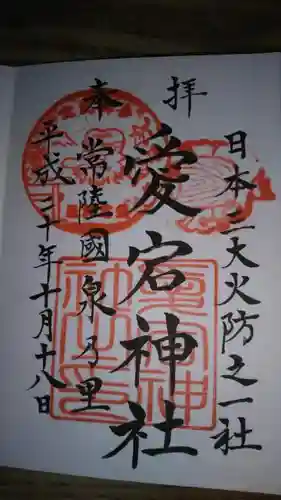 奉拝
日本三大火防之一社
愛宕神社
常陸國泉乃里
平成三十年十月十八日